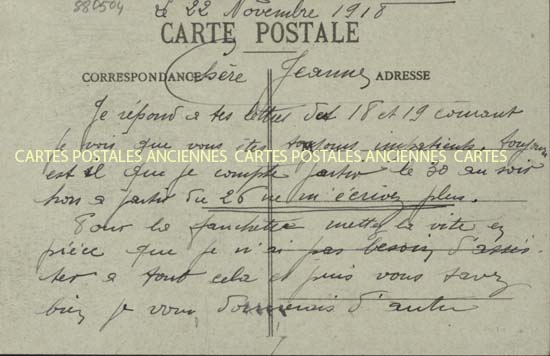 880504
le 22 Novembre 1918
CARTE POSTALE
CORRESPONDANCE Chère Jeanne ADRESSE
Je répond a tes lettres du 18 et 19 courant
je vois que vous êtes toujours impatients. toujours
CARTES POSTALES ANCIENNES CARTES POSTALES ANCIENNES CARTES
est il que je compte partir le 30 au soir
donc a partir du 26 ne m'écrivez plus.
Pour la mettez la vite en
pièce que je n'ai pas besoin d'assis-
ter a tout cela et puis vous savez
bien je vous d'autre